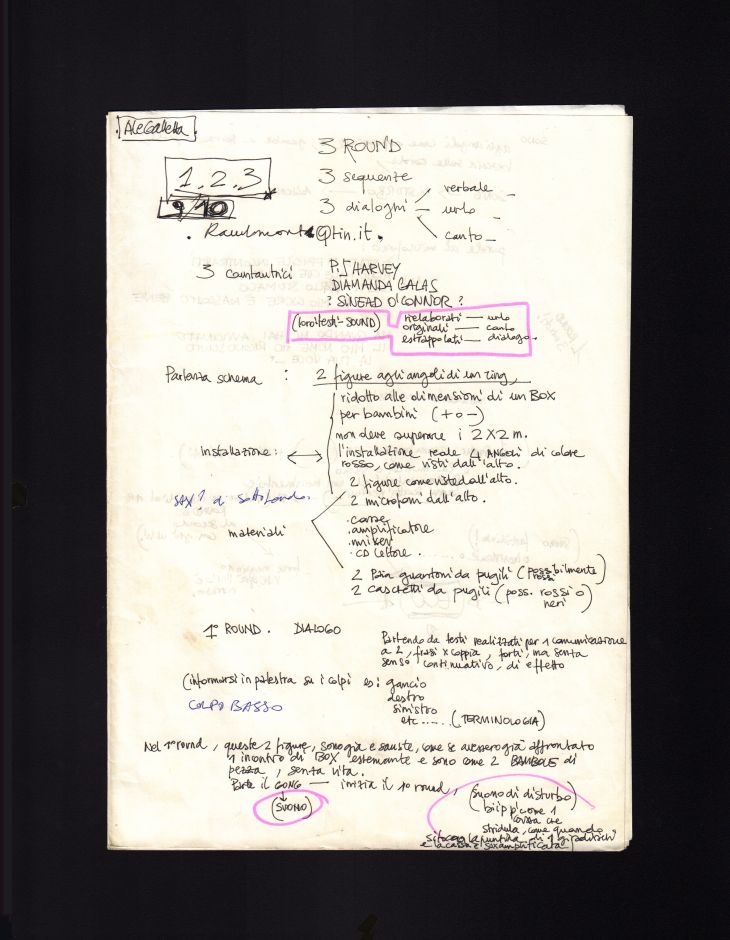 AleGalletta
3 ROUND
1.2.3
3 sequenze
9/10
3 dialoghi
verbale
urlo
canto
@tin.it.
3 cantautrici
PJ HARVEY
DIAMANDA GALAS
? SINEAD O'CONNOR ?
(loro testi-SOUND)
rielaborati — urlo
originali — canto
estrappolati — dialogo.
Partenza schema :
2 figure agli angoli di un ring,
ridotto alle dimensioni di un BOX
per bambini (+ o -)
non deve superare i 2X2 m.
Installazione:
l'installazione reale 4 ANGOLI di colore
rosso, come visti dall'alto.
2 figure come viste dall'alto.
SAX? a sottofondo.
2 microfoni dall'alto.
materiali
.casse
.amplificatore
.mixer
.CD lettore.......
2 paia guantoni da pugili (possibilmente rossi)
2 caschetti da pugili (poss. rossi o neri)
1° ROUND. DIALOGO
Partendo da testi realizzati per 1 comunicazione
a 2, frasi x coppia, forti, ma senza
senso continuativo, di effetto
(informarsi in palestra su i colpi es: gancio
destro
COLPO BASSO
sinistro
etc...... (TERMINOLOGIA)
Nel 1° round, queste 2 figure, sono già esauste, come se avessero già affrontato
1 incontro di BOX estenuante e sono come 2 BAMBOLE di
pezza, senza vita.
Parte il GONG — inizia il 1° round,
(SUONO)
(suono di disturbo)
biip come 1
stridula, come quando
si tocca la puntina di 1 giradischi
e la cassa è